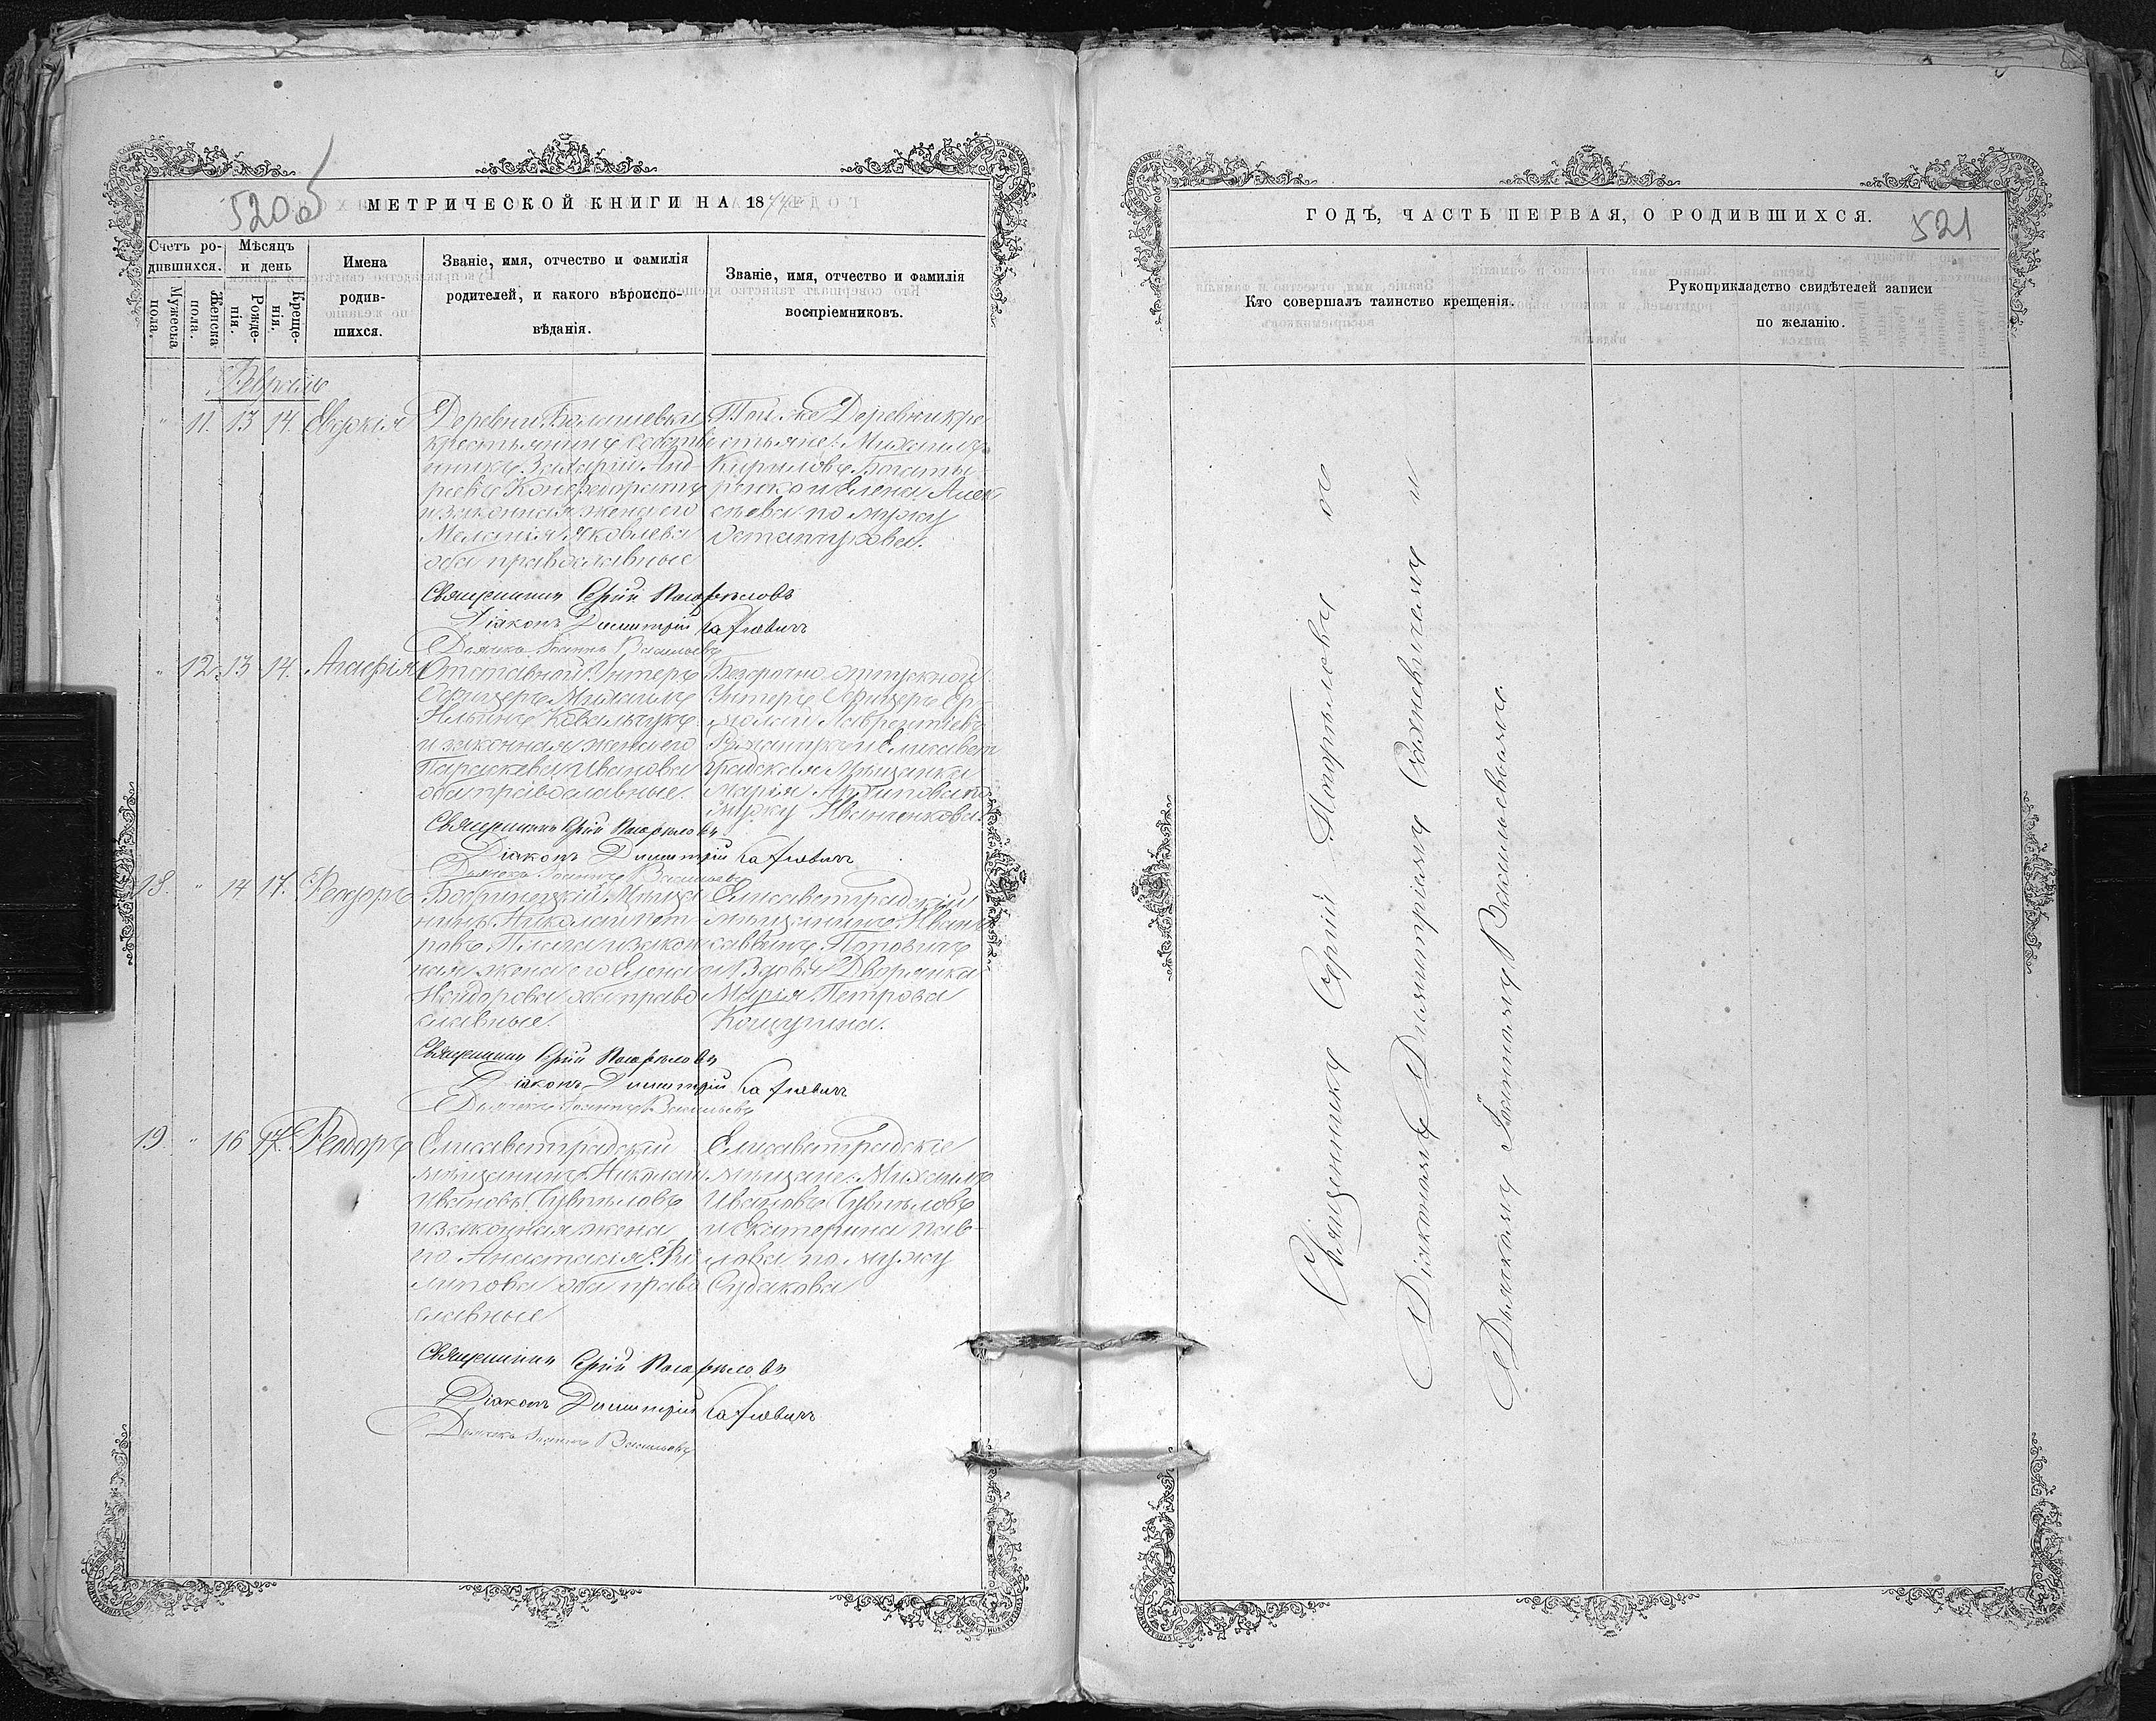 520об
МЕТРИЧЕСКОЙ КНИГИ НА 187
Счетъ ро-
дившихся.
Мужеска
пола.
Женска
пола.
Мѣсяцъ
и день
Рожде-
нія.
Креще-
нія.
Имена
родив-
шихся.
Званіе, имя, отчество и фамилія
родителей, и какого вѣроиспо-
вѣданія.
Званіе, имя, отчество и фамилія
воспріемниковъ.
Февраль
" 11. 13 14. Евдокія
Деревни
крестьянинъ собствен
никъ Захарій Анд
реевъ
и законная жена его
Меланія Яковлева
оба православные
Той же Деревни кре
стьяне: Михаилъ
Кириловъ Богаты
ренко и Елена Алек
сѣева по мужу
Остапчукова.
Священникъ Сергій
Діаконъ Димитрій
Дьячокъ Іоаннъ Васильевъ
" 12. 13 14. Агафія
Отставной Унтеръ
Офицеръ Михаилъ
Ильинъ Ковальчукъ
и законная жена его
Параскева Иванова
оба православные.
Безсрочно отпускной
Унтеръ Офицеръ Ер
молай Лаврентіевъ
и Елисавет
градская Мѣщанка
Марія Архипова по
мужу Иванченкова.
Священникъ Сергій
Діаконъ Димитрій
Дьячокъ Іоаннъ Васильевъ
18. " 14 17. Феодоръ
Бобринецкій Мѣща
нинъ Николай Пет
ровъ и закон
ная жена его Елена
Исидорова оба право
славные.
Елисаветградскій
мѣщанинъ Иванъ
Саввинъ Поповичъ
и Вдова Дворянка
Марія Петрова
Кошурина.
Священникъ Сергій
Діаконъ Димитрій
Дьячокъ Іоаннъ Васильевъ
19. " 16 17. Феодоръ
Елисаветградскій
мѣщанинъ Николай
Ивановъ Цвѣтѣловъ
и законная жена
го Анастасія Фи
липова оба право
славные
Елисаветградскіе
мѣщане: Михаилъ
Ивановъ Цвѣтѣловъ
и Екатерина Пав
лова по мужу
Судакова
Священникъ Сергій
Діаконъ Димитрій
Дьячокъ Іоаннъ Васильевъ
ГОДЪ, ЧАСТЬ ПЕРВАЯ, О РОДИВШИХСЯ.
521
Кто совершалъ таинство крещенія.
Рукоприкладство свидѣтелей записи
по желанію.
Священникъ Сергій со
Діакономъ Димитріемъ и
Дьякомъ Іоанномъ Васильевымъ.